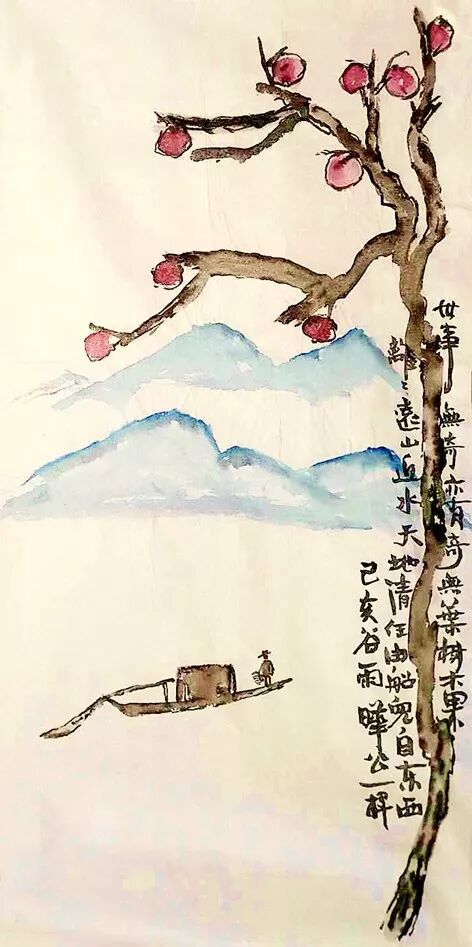 世事無奇亦有奇無葉树木果
離〻遠山近水天地清任由船兒自东西
己亥谷雨曄公一